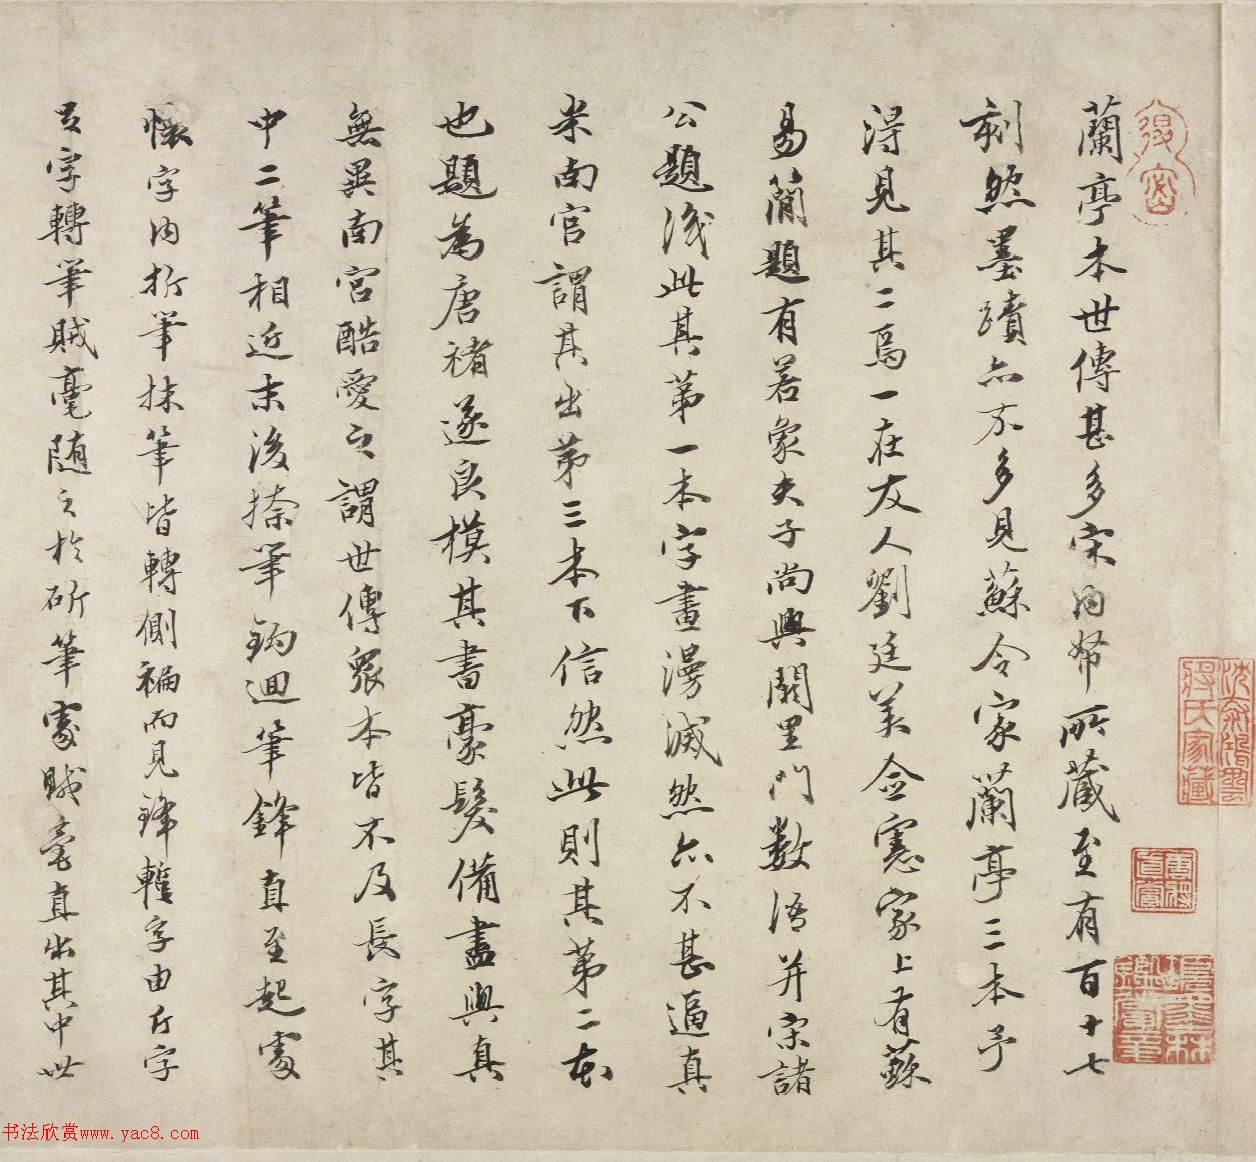 蘭亭本世傳甚多宋内帑所藏至有百十七
刻然墨蹟亦不多見蘇令家蘭亭三本予
得見其二焉一在友人劉廷美僉憲家上有蘇
易簡題有若象夫子尚興闕里門數語并宋諸
公題識此其第一本字畫漫滅然亦不甚逼真
米南宮謂其出第三本下信然此則其第二本
也題為唐褚遂良模其書豪髮備盡與真
無異南宮酷愛之謂世傳眾本皆不及長字其
中二筆相近末後捺筆鈎迴筆鋒直至起處
懷字内折筆抹筆皆轉側褊而見鋒蹔字内斤字
足字轉筆賊毫隨之於斫筆處賊毫直出其中世
復密
沈家鴻雲
蔣氏家藏
书法欣赏www.yac8.com